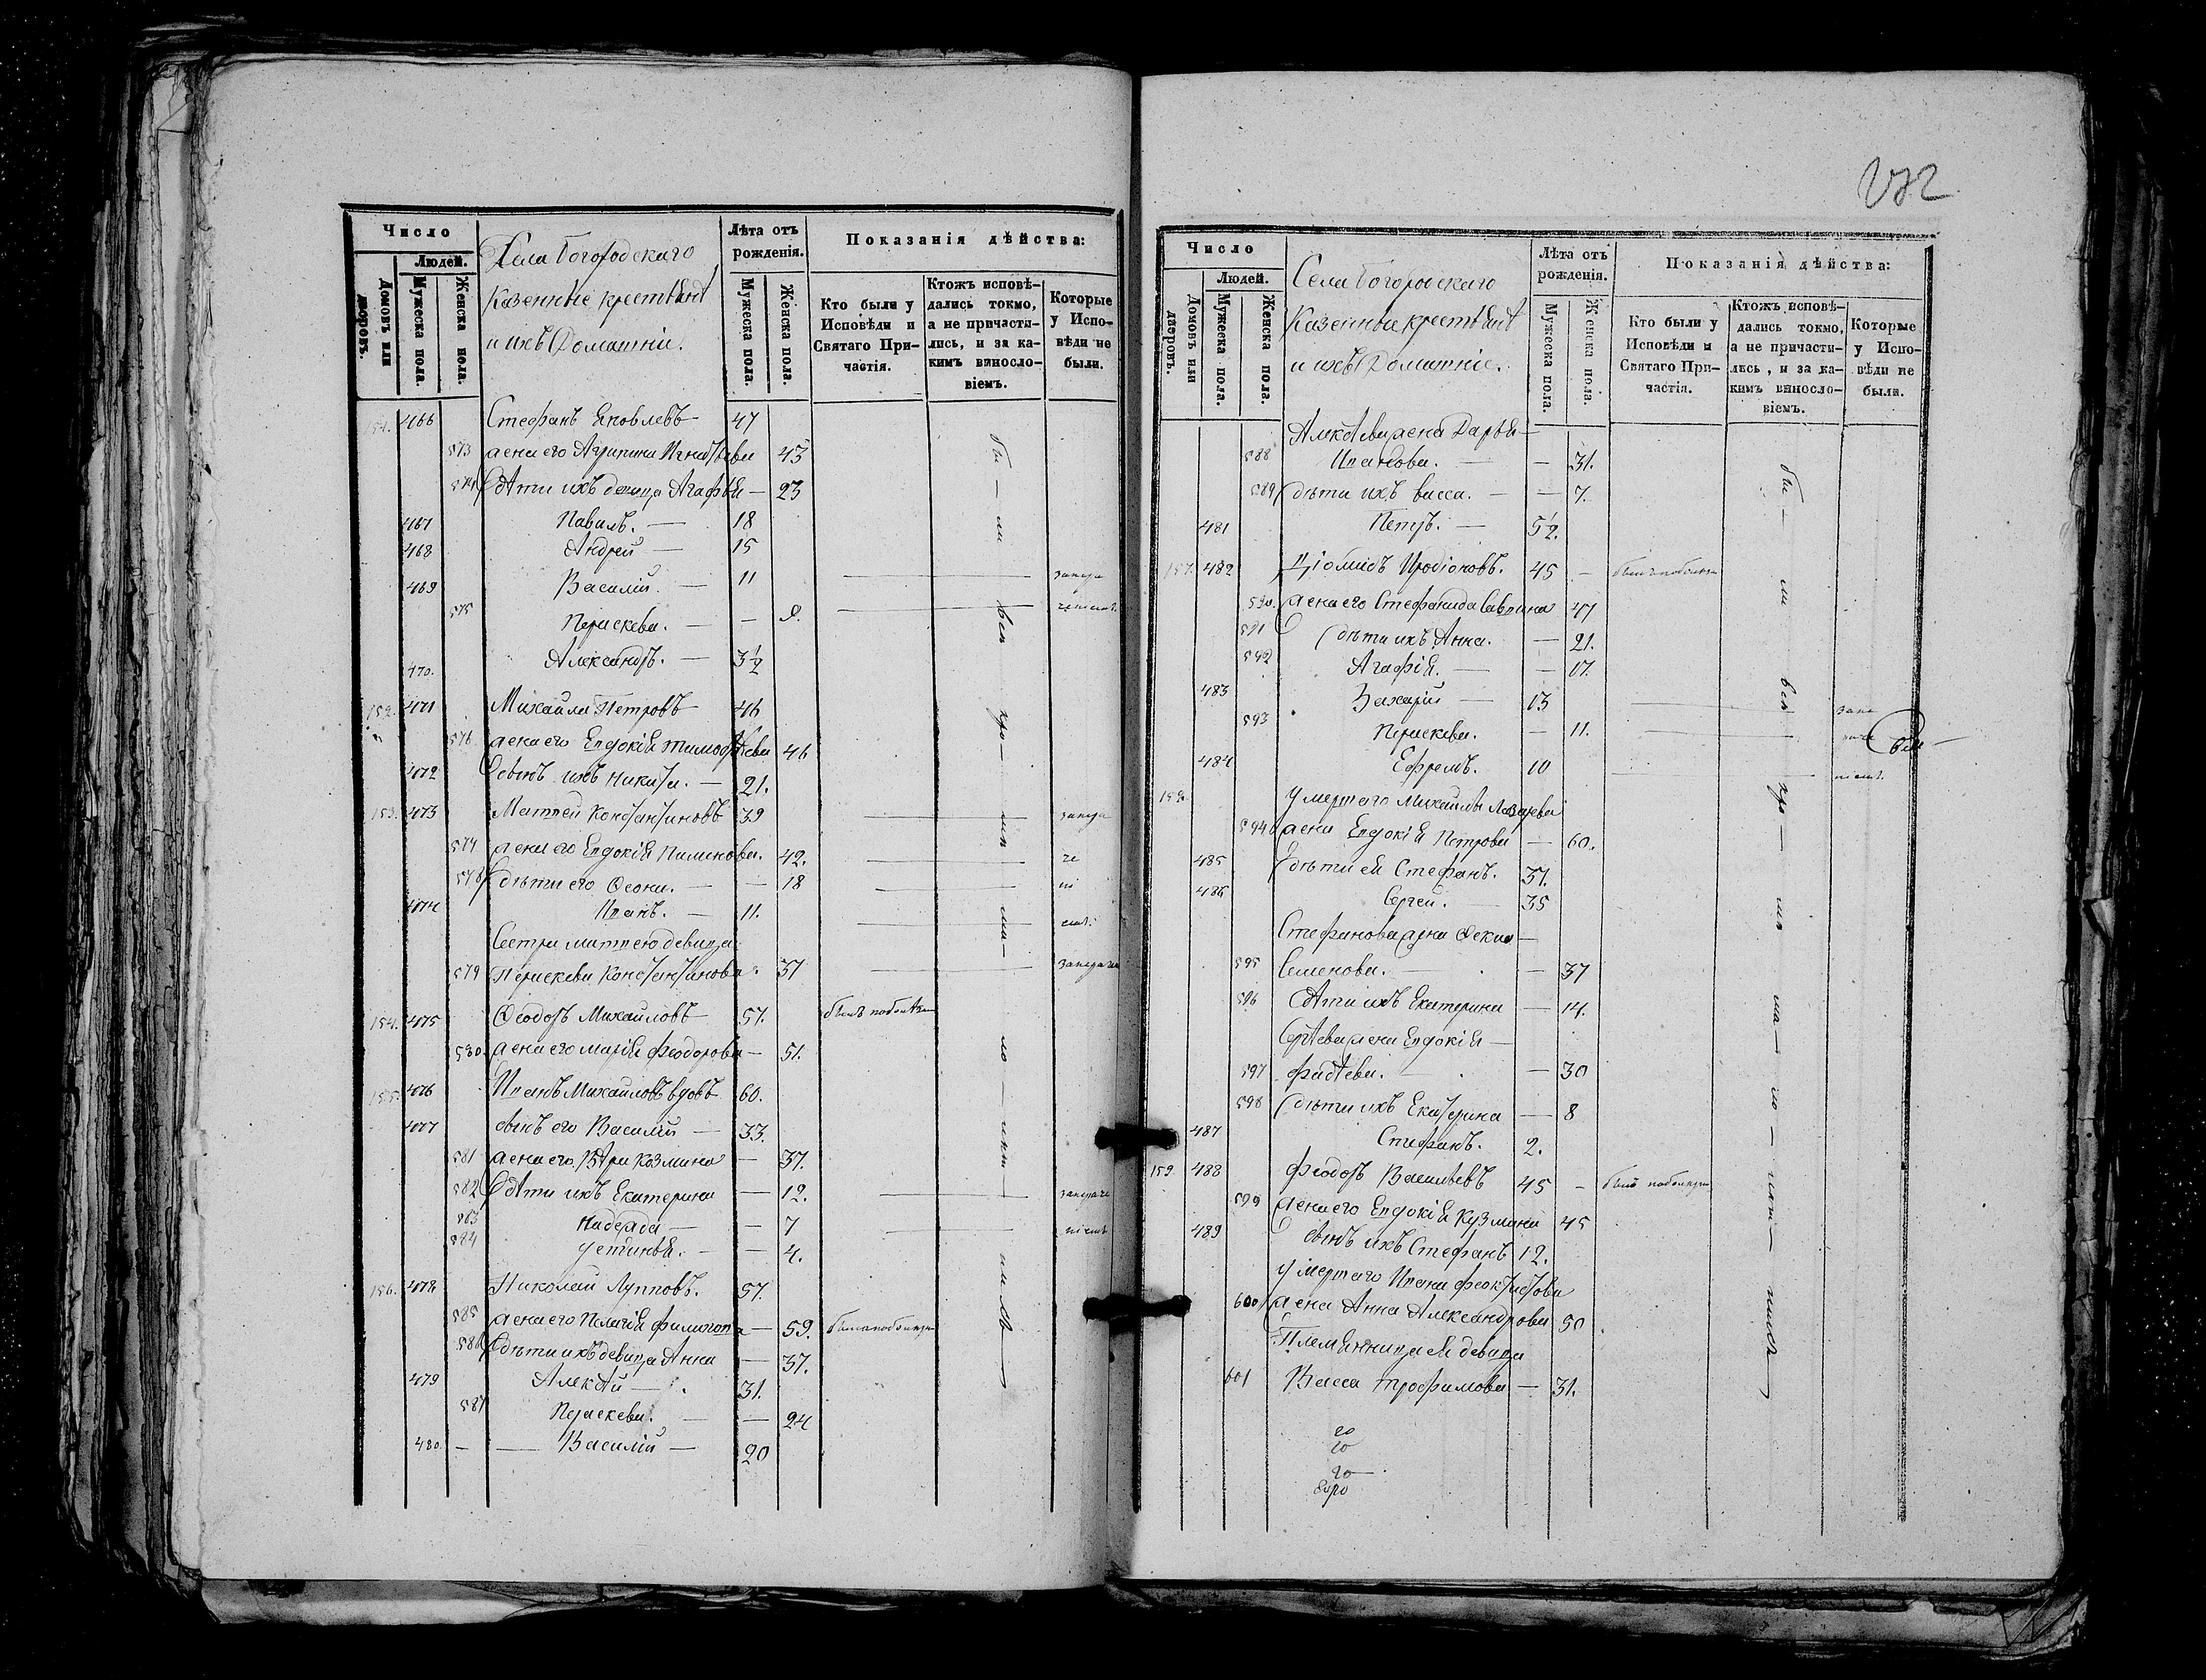 Число
Людей.
Домовъ или дворовъ.
Мужеска пола.
Женска пола.
Села Богородскаго
Казенные крестьянѣ
и ихъ Домашніе.
Лѣта отъ рожденія.
Мужеска пола.
Женска пола.
Показанія дѣйства:
Кто были у Исповѣди и Святаго Причастія.
Ктожъ исповѣдались токмо, а не причастились, и за какимъ винословіемъ.
Которые у Исповѣди не были.
151. 466 Стефанъ Яковлевъ 47
573 жена его Агрипина Игнатьева 43
574 Дѣти ихъ девица Агафья — 23
467 Павилъ. — 18
468 Андрей — 15
469 Василій. — 11
575 Параскева. — — 9.
470. Александръ. — 3 1/2
152. 471 Михайла Петровъ 46
576 жена его Евдокія Тимофѣева 46
472 Сынъ ихъ Никита. — 21.
153. 473 Матвей Константиновъ 39
577 жена его Евдокія Пименова. 42.
578 Дѣти его Ѳеона. — — 18
474 Иванъ. — 11.
Сестра Матвею девица
579 Параскева Константинова 37
154. 475 Ѳеодоръ Михайловъ 57.
580. жена его Марія Феодорова — 51.
155. 476 Иванъ Михайловъ вдовъ 60.
477 сынъ его Василій — 33.
581 жена его Вѣра Козмина — 37.
582 Дѣти ихъ Екатерина — 12.
583 Надежда — — 7
584 Устинья. — — 4.
156. 478 Николай Лупповъ. 57.
585 жена его Пелагія Филипова — 59.
586 Дѣти ихъ девица Анна — 37.
479 Алексѣй — 31.
587 Параскева. — — 24
480. — — Василій — 20
Число
Людей.
Домовъ или дворовъ.
Мужеска пола.
Женска пола.
Села Богородскаго
Казенныя крестьянѣ
и ихъ Домашніе.
Лѣта отъ рожденія.
Мужеска пола.
Женска пола.
Показанія дѣйства:
Кто были у Исповѣди и Святаго Причастія.
Ктожъ исповѣдались токмо, а не причастились, и за какимъ винословіемъ.
Которые у Исповѣди не были.
Алексѣева жена Дарья —
588 Иванова. — — 31.
589 Дѣти ихъ Васса. — — 7.
481 Петръ. — 5 1/2.
157. 482 Діомидъ Иродіоновъ. 45 —
590. жена его Стефанида Саввина 47
591 Дѣти ихъ Анна. — 21.
592 Агафія. — — 17.
483 Захарій — 13
593 Параскева. — 11.
484 Ефремъ. 10
158. Умершаго Михаила Лазарева
594 жена Евдокія Петрова — 60.
485 Дѣти ея Стефанъ. 37.
486 Сергей. — 35
Стефанова жена Ѳекла —
595 Семенова. — — 37
596 Дѣти ихъ Екатерина — 14.
Сергѣева жена Евдокія —
597 Фадѣева. — — 30
598 Дѣти ихъ Екатерина — 8
487 Стефанъ. 2.
159. 488 Феодоръ Васильевъ 45 —
599 жена его Евдокія Кузмина 45
489 сынъ ихъ Стефанъ 12.
Умершаго Ивана Феоктистова
600 жена Анна Александрова 50
Племянница ея девица
601 Васса Трофимова — 31.